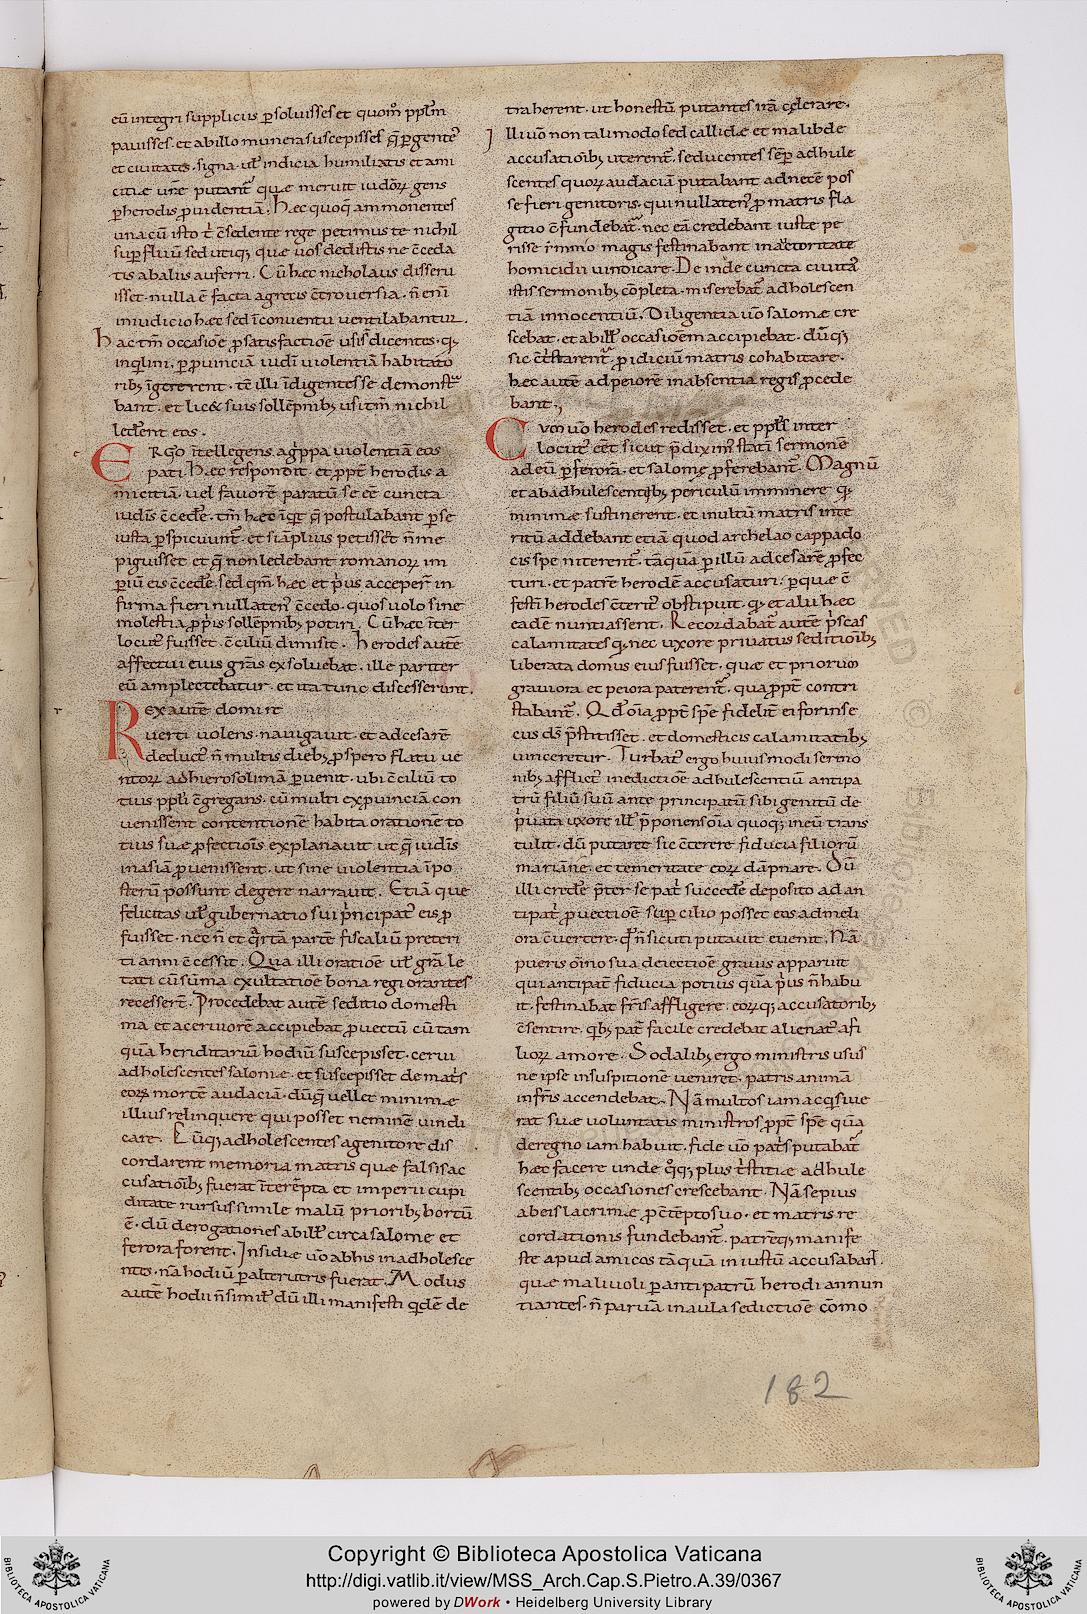 eũ integri suppliciis ꝑsoluisset et quom̃ ppl̃m
pauisses. et ab illo munera suscepisses q̃ ꝑ gentes̃
et ciuitates. signa. ul̃ indicia humiliatis et ami
citiæ ur̃e putant̃ quæ meruit iudõꝝ gens
ꝑ herodis ꝓuidentiã. hæc quoq̃ ammonentes
una cũ isto t̃ c̃sedente rege petimus te nichil
suꝑfluũ sed utiq; quæ uos dedistis ne c̃ceda
tis ab aliis auferri. Cũ hæc nicholaus disseru
isset. nulla ẽ facta a grecis c̃trouersia. ñ eni
in iudicio hæc sed ĩ conuentu uentilabantur.
hac tm̃ occasioẽ ꝓ satisfactioẽ usi s̃ dicentes. q;
inq̃lini. ꝑ ꝓuinciã iudei uiolentiã habitato
rib; ĩgererent. tẽ illi ĩdigentes se demonst̃
bant. et lic& suis sollẽpnib; usi tm̃ nichil
leder̃ent eos.
ERGO ĩtellegens agrippa uiolentiã eos
pati. hæc respondit. et ꝓpt̃ herodis a
micitiã. uel fauorẽ paratũ se eẽ cuncta
iudeis c̃cedẽ. tm̃ hæc inq̃t q̃ postulabant ꝑ se
iusta ꝑspicuunt̃. et si ãplius petissẽt ñ me
piguisset et q̃ non ledebant romanoꝝ im
ꝑiũ eis c̃cedẽ. sed qm̃ hæc et p̃us acceperĩ in
firma fieri nullaten̉ c̃cedo. quos uolo sine
molestia ꝓp̃is sollẽpnib; potiri. Cũ hæc ĩter
locut̉ fuisset. c̃ciliũ dimisit. herodes autẽ
affectui eius grãs exsoluebat. ille pariter
eũ amplectebatur. et ita tunc discesserunt.
Rex autẽ domi re
uerti uolens. nauigauit. et ad cesarẽ
deduct̉ ñ multis dieb; ꝓspero flatu ue
ntoꝝ ad hierosolimã ꝑuenit. ubi c̃ciliũ to
tius ppl̃i c̃gregans. cũ multi ex ꝓuinciã con
uenissent contentionẽ habita orationẽ to
tius suæ ꝓfectiois explanauit ut q̃ iudeis
in asiã ꝑuenissent. ut sine uiolentia ĩ po
sterũ possunt degere narrauit. Etiã que
felicitas ul̃ gubernatio sui p̃ncipat̉ eis ꝓ
fuisset. nec ñ et q̃rtã partẽ fiscaliũ preteri
ti anni c̃cessit. Qua illi oratioẽ ul̃ grã le
tati cũ sũma exultatioẽ bona regi orantes
recesserẽ. Procedebat autẽ seditio domesti
ma. et aceriuorẽ accipiebat ꝓuectũ cũ tam
quã heriditariũ hodiũ suscepisset. cerui
adholescentes salomæ. et suscepisset de mat̃s
eorꝝ mortẽ audaciã. dũq̃ uellet minimæ
illius relinquere qui posset neminẽ uindi
care. Cũq; adholescentes a genitore dis
cordarent memoria matris quæ falsis ac
cusatioib; fuerat ĩterẽpta et imperii cupi
ditate rursus simile malũ prioribus hortũ
ẽ. dũ derogationes ab ill̃ circa salome et
ferora forent. Insidiæ uõ ab his in adholesce
ntes. nã hodiũ ꝑ alterutris fuerat. Modus
autẽ hodii ñ simil̃ dũ illi manifesti qdẽ de
traherent. ut honestũ putantes irã celerare.
Illi uõ non tali modo sed callidæ et malib de
accusatioib; uterent̃. seducentes sẽꝑ adhule
scentes quoꝝ audaciã putabant ad necẽ pos
se fieri genitoris. qui nullaten̉ ꝓ matris fla
gitio c̃fundebat̃. nec eã credebant iustæ pe
risse immo magis festinabant in auctoritate
homicidii uindicare. Deinde cuncta ciuita̴
istis sermonib; cõpleta. miserebat̃ adholescen
tiã innocentiũ. Diligentia uõ salomæ cre
scebat. et ab ill̃ occasioẽm accipiebat. dũq;
sic c̃tstarent̃. ꝑ idiciũ matris cohabitare.
hæc autẽ ad peiorẽ in absentia regis ꝓcede
bant.
Cum uõ herodes redisset. et ppl̃s inter
locut̉ eẽt sicut p̃diximus̃ statĩ sermonẽ
ad eũ ꝑ ferorã. et salomę ꝓferebant̃. Magnũ
et ab adhulescentib; periculũ imminere q;
minimæ sustinerent. et inultũ matris inte
ritũ addebant etiã quod archelao cappado
cis spe niterent̃. tãquã ꝑ illũ ad cesarẽ ꝓfec
turi. et patrẽ herodẽ accusaturi. ꝑ quæ ẽ
festi herodes c̃territ̉ obstipuit. q; et alii hæc
eadẽ nuntiassent. Recordabat̃ autẽ p̃scas
calamitates q; nec uxore priuatus seditioib;
liberata domus eius fuisset. quæ et priorum
grauiora et peiora paterent̃. qua ꝓpt̃ contri
stabant̃. Qd̃ oĩa ꝓpt̃ spẽ fidelit̃ ei forinse
cus d̃s p̃stitisset. et domesticis calamitatib;
uinceretur. Turbat̉ ergo huiusmodi sermo
nib; afflict̉ in edictioẽ adhulescentiũ antipa
trũ filiũ suũ ante principatũ sibi genitũ de
p̃uata uxore ill̃ p̃ponens oĩa quoq; in eũ trans
tulit. dũ putaret sic c̃terere fiducia filiorũ
mariãne. et temeritate eoꝝ dãpnare. Dũ
illi credẽ p̃ter se pat̃ succedẽ deposito ad an
tipat̃ ꝓuectioẽ suꝑcilio posset eos ad meli
ora c̃uertere. q̃ ñ sicuti putauit euenit. Nã
pueris oĩno sua deiectioẽ grauis apparuit
qui antipat̃ fiducia potius quã p̃us ñ habu
it. festinabat fr̃is affligere. eoꝝq; accusatorib;
c̃sentire. qb; pat̃ facile credebat alienat̉ a fi
lioꝝ amore. Sodalib; ergo ministris usus
ne ipse in suspitionẽ ueniret. patris animã
in fr̃is accendebat. Nã multos iam acq̃siue
rat suæ uoluntatis ministros ꝓpt̃ spẽ quã
de regno iam habuit. fide uõ pat̃s putabat̃
hæc facere unde q̃q; plus t̃stitiæ adhule
scentib; occasiones crescebant. Nã sepius
ab eis lacrimæ ꝓ c̃tẽpto suo. et matris re
cordationis fundebant̃. patrẽq; manife
ste apud amicos tãquã iniustũ accusabant̃.
quæ maliuoli ꝑ antipatrũ herodi annun
tiantes. ñ paruã in aula sedictioẽ cõmo
182
Copyright © Biblioteca Apostolica Vaticana
http://digi.vatlib.it/view/MSS_Arch.Cap.S.Pietro.A.39/0367
powered by DWork • Heidelberg University Library
BIBLIOTECA APOSTOLICA VATICANA
BIBLIOTECA APOSTOLICA VATICANA